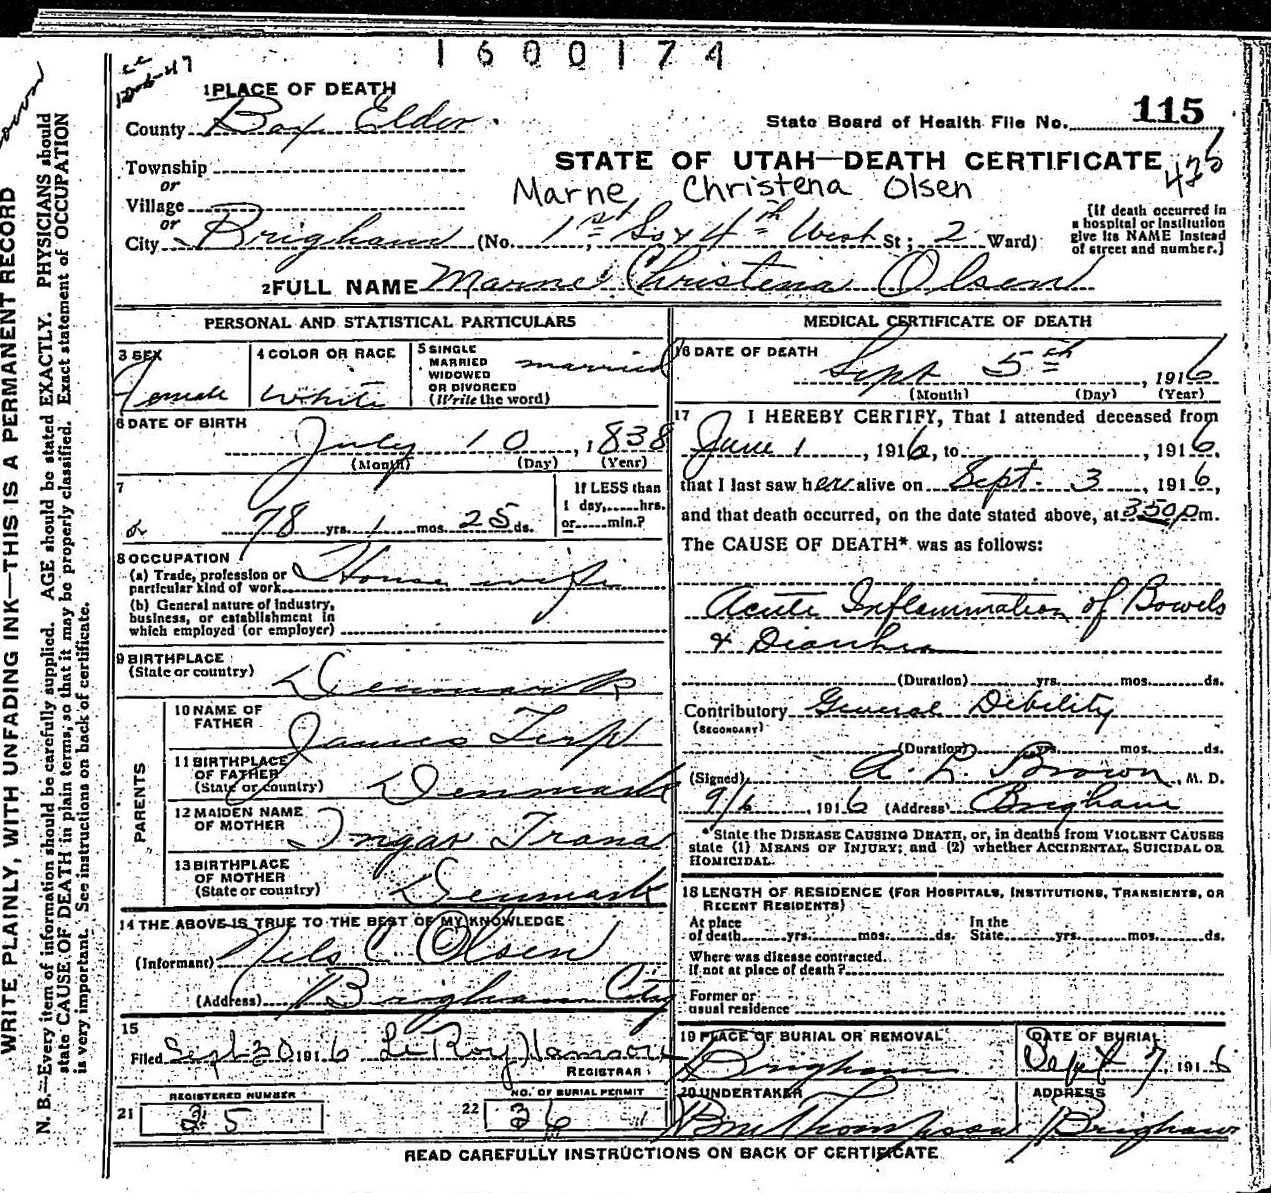 1600174
1PLACE OF DEATH
County Box Elder
State Board of Health File No. 115
Township
or
Village
or
STATE OF UTAH—DEATH CERTIFICATE
Marne Christena Olsen
City Brigham (No. 1st So & 4th West St; 2 Ward)
[If death occurred in
a hospital or institution
give its NAME instead
of street and number.]
2FULL NAME Marne Christena Olsen
PERSONAL AND STATISTICAL PARTICULARS
3 SEX
Female
4 COLOR OR RACE
White
5 SINGLE
MARRIED
WIDOWED
OR DIVORCED
(Write the word)
married
6 DATE OF BIRTH
July 10, 1838
(Month) (Day) (Year)
7
78 yrs. 1 mos. 25 ds.
If LESS than
1 day, hrs.
or min.?
8 OCCUPATION
(a) Trade, profession or
particular kind of work House wife
(b) General nature of industry,
business, or establishment in
which employed (or employer)
9 BIRTHPLACE
(State or country)
Denmark
PARENTS
10 NAME OF
FATHER
James Terp
11 BIRTHPLACE
OF FATHER
(State or country)
Denmark
12 MAIDEN NAME
OF MOTHER
Ingar Trana
13 BIRTHPLACE
OF MOTHER
(State or country)
Denmark
14 THE ABOVE IS TRUE TO THE BEST OF MY KNOWLEDGE
(Informant) Nils C. Olsen
(Address) Brigham City
15
Filed Sept 30 1916 LeRoy Hanson
REGISTRAR
REGISTERED NUMBER
21 35
NO. OF BURIAL PERMIT
22 36
MEDICAL CERTIFICATE OF DEATH
16 DATE OF DEATH
Sept 5th, 1916
(Month) (Day) (Year)
17 I HEREBY CERTIFY, That I attended deceased from
June 1, 1916, to , 1916,
that I last saw her alive on Sept. 3, 1916,
and that death occurred, on the date stated above, at 350 pm.
The CAUSE OF DEATH* was as follows:
Acute Inflammation of Bowels
& Diarrhea
(Duration) yrs. mos. ds.
Contributory General Debility
(SECONDARY)
(Duration) yrs. mos. ds.
(Signed) A L Brown, M. D.
9/6, 1916 (Address) Brigham
*State the DISEASE CAUSING DEATH, or, in deaths from VIOLENT CAUSES
state (1) MEANS OF INJURY; and (2) whether ACCIDENTAL, SUICIDAL OR
HOMICIDAL.
18 LENGTH OF RESIDENCE (FOR HOSPITALS, INSTITUTIONS, TRANSIENTS, OR
RECENT RESIDENTS)
At place
of death yrs. mos. ds.
In the
State yrs. mos. ds.
Where was disease contracted.
if not at place of death?
Former or
usual residence
19 PLACE OF BURIAL OR REMOVAL
Brigham
DATE OF BURIAL
Sept 7, 1916
20 UNDERTAKER
Thompson
ADDRESS
Brigham
READ CAREFULLY INSTRUCTIONS ON BACK OF CERTIFICATE
WRITE PLAINLY, WITH UNFADING INK—THIS IS A PERMANENT RECORD
N. B.—Every item of information should be carefully supplied. AGE should be stated EXACTLY. PHYSICIANS should
state CAUSE OF DEATH in plain terms, so that it may be properly classified. Exact statement of OCCUPATION
is very important. See instructions on back of certificate.